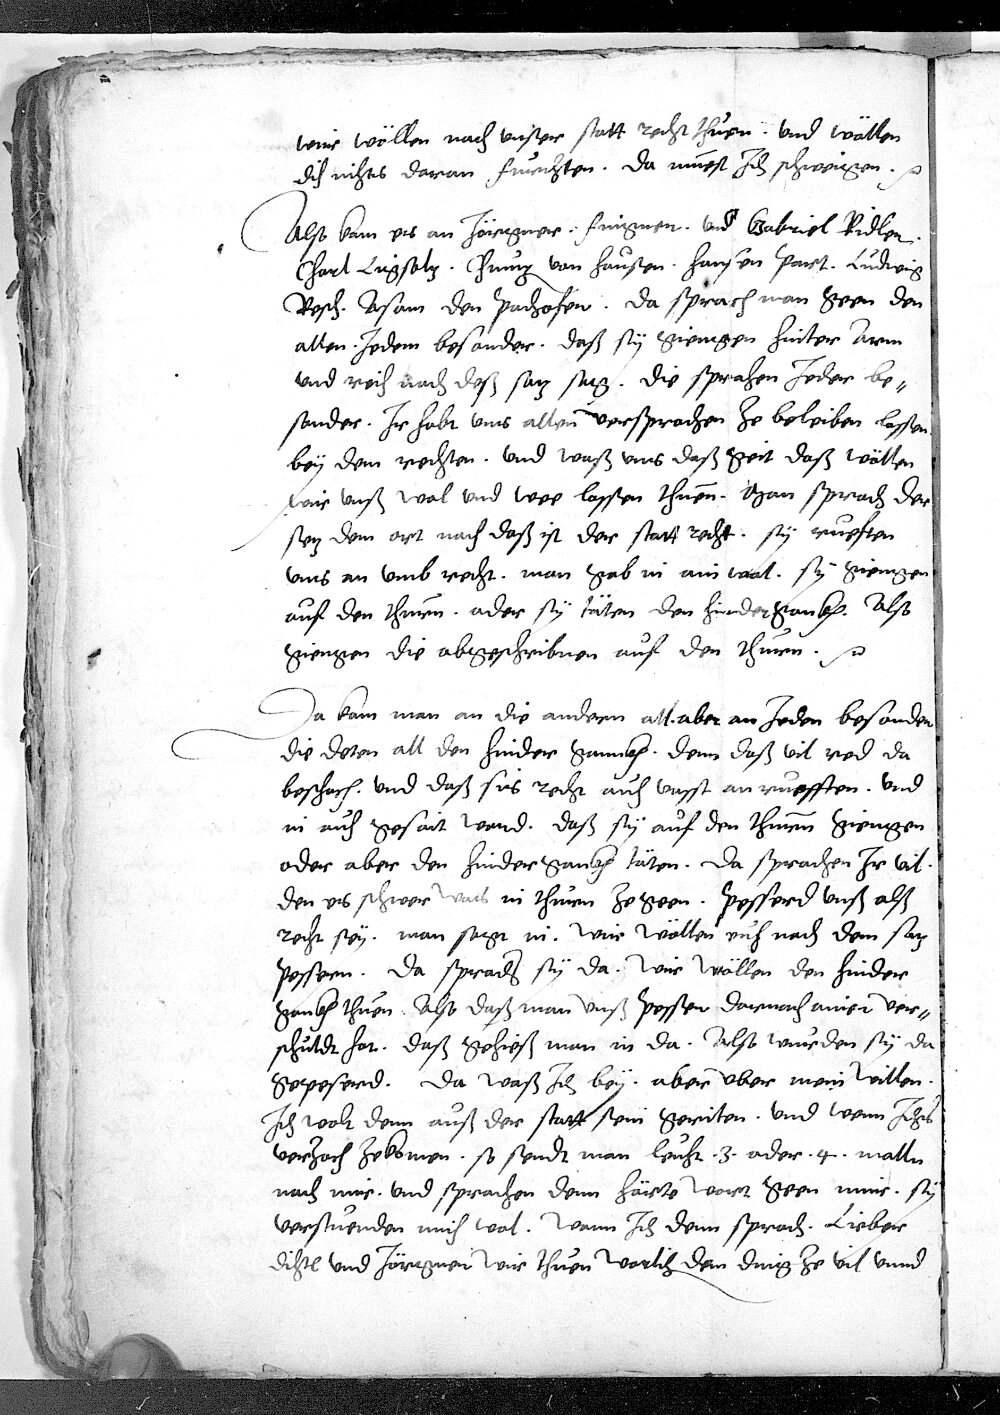 wir wöllen nach unser statt recht thuen. und wöllen
dich nichts daran fürchten. da muest Ich schweigen.
Also kam es an Jörgner. seinigen. und Gabriel Ridler.
Charl Ligsalz. von Hausen. Hansen Part. Ludwig
Resch. Asam den pachofen. da sprach man geen den
allen. Jedem besonder. daß sÿ giengen hinter
und nach deß saz sag. die sprachen Jeder be„
sonder. Ir habt uns allen versprochen ze beleiben lassen
beÿ dem rechten. und waß uns daß geit daß wöllen
wir unß wol und wee lassen thuen. Man sprach der
saz dem ort nach daß ist der statt recht. sÿ rueften
uns an umb recht. man gab in ain wal. sÿ giengen
auf den thuren. oder sÿ täten den hindergankh. Also
giengen die abgeschribnen auf den thuren.
Da kam man an die andern all. aber an Jeden besonder
die deten all den hinder gannkh. denn daß vil red da
beschach. und daß sÿs recht auch vasst an rueffften. und
in auch gesait ward. daß sÿ auf den thuren giengen
oder aber den hindergankh täten. da sprachen Ir vil.
den es schwer was in thuren ze geen. pessserd unß alß
recht seÿ. man sagt in. wir wöllen euch nach dem saz
pessern. da sprach sÿ da. wir wöllen den hinder
gankh thuen. Also daß man unß pesser darnach ainer ver„
schuldt hat. daß gehieß man in da. Also wurden sÿ da
gepesserd. da waß Ich beÿ. aber über mein willen.
Ich wolt denn auß der statt sein geriten. und wenn Ichs
verzoch ze komen. so sendt man leicht. 3. oder. 4. malln
nach mir. und sprachen denn härte wort geen mir. sÿ
verstuenden mich wol. wann Ich denn sprach. Lieber
dichtl und Jörgner wir thuen warlich dem ding ze vil unnd